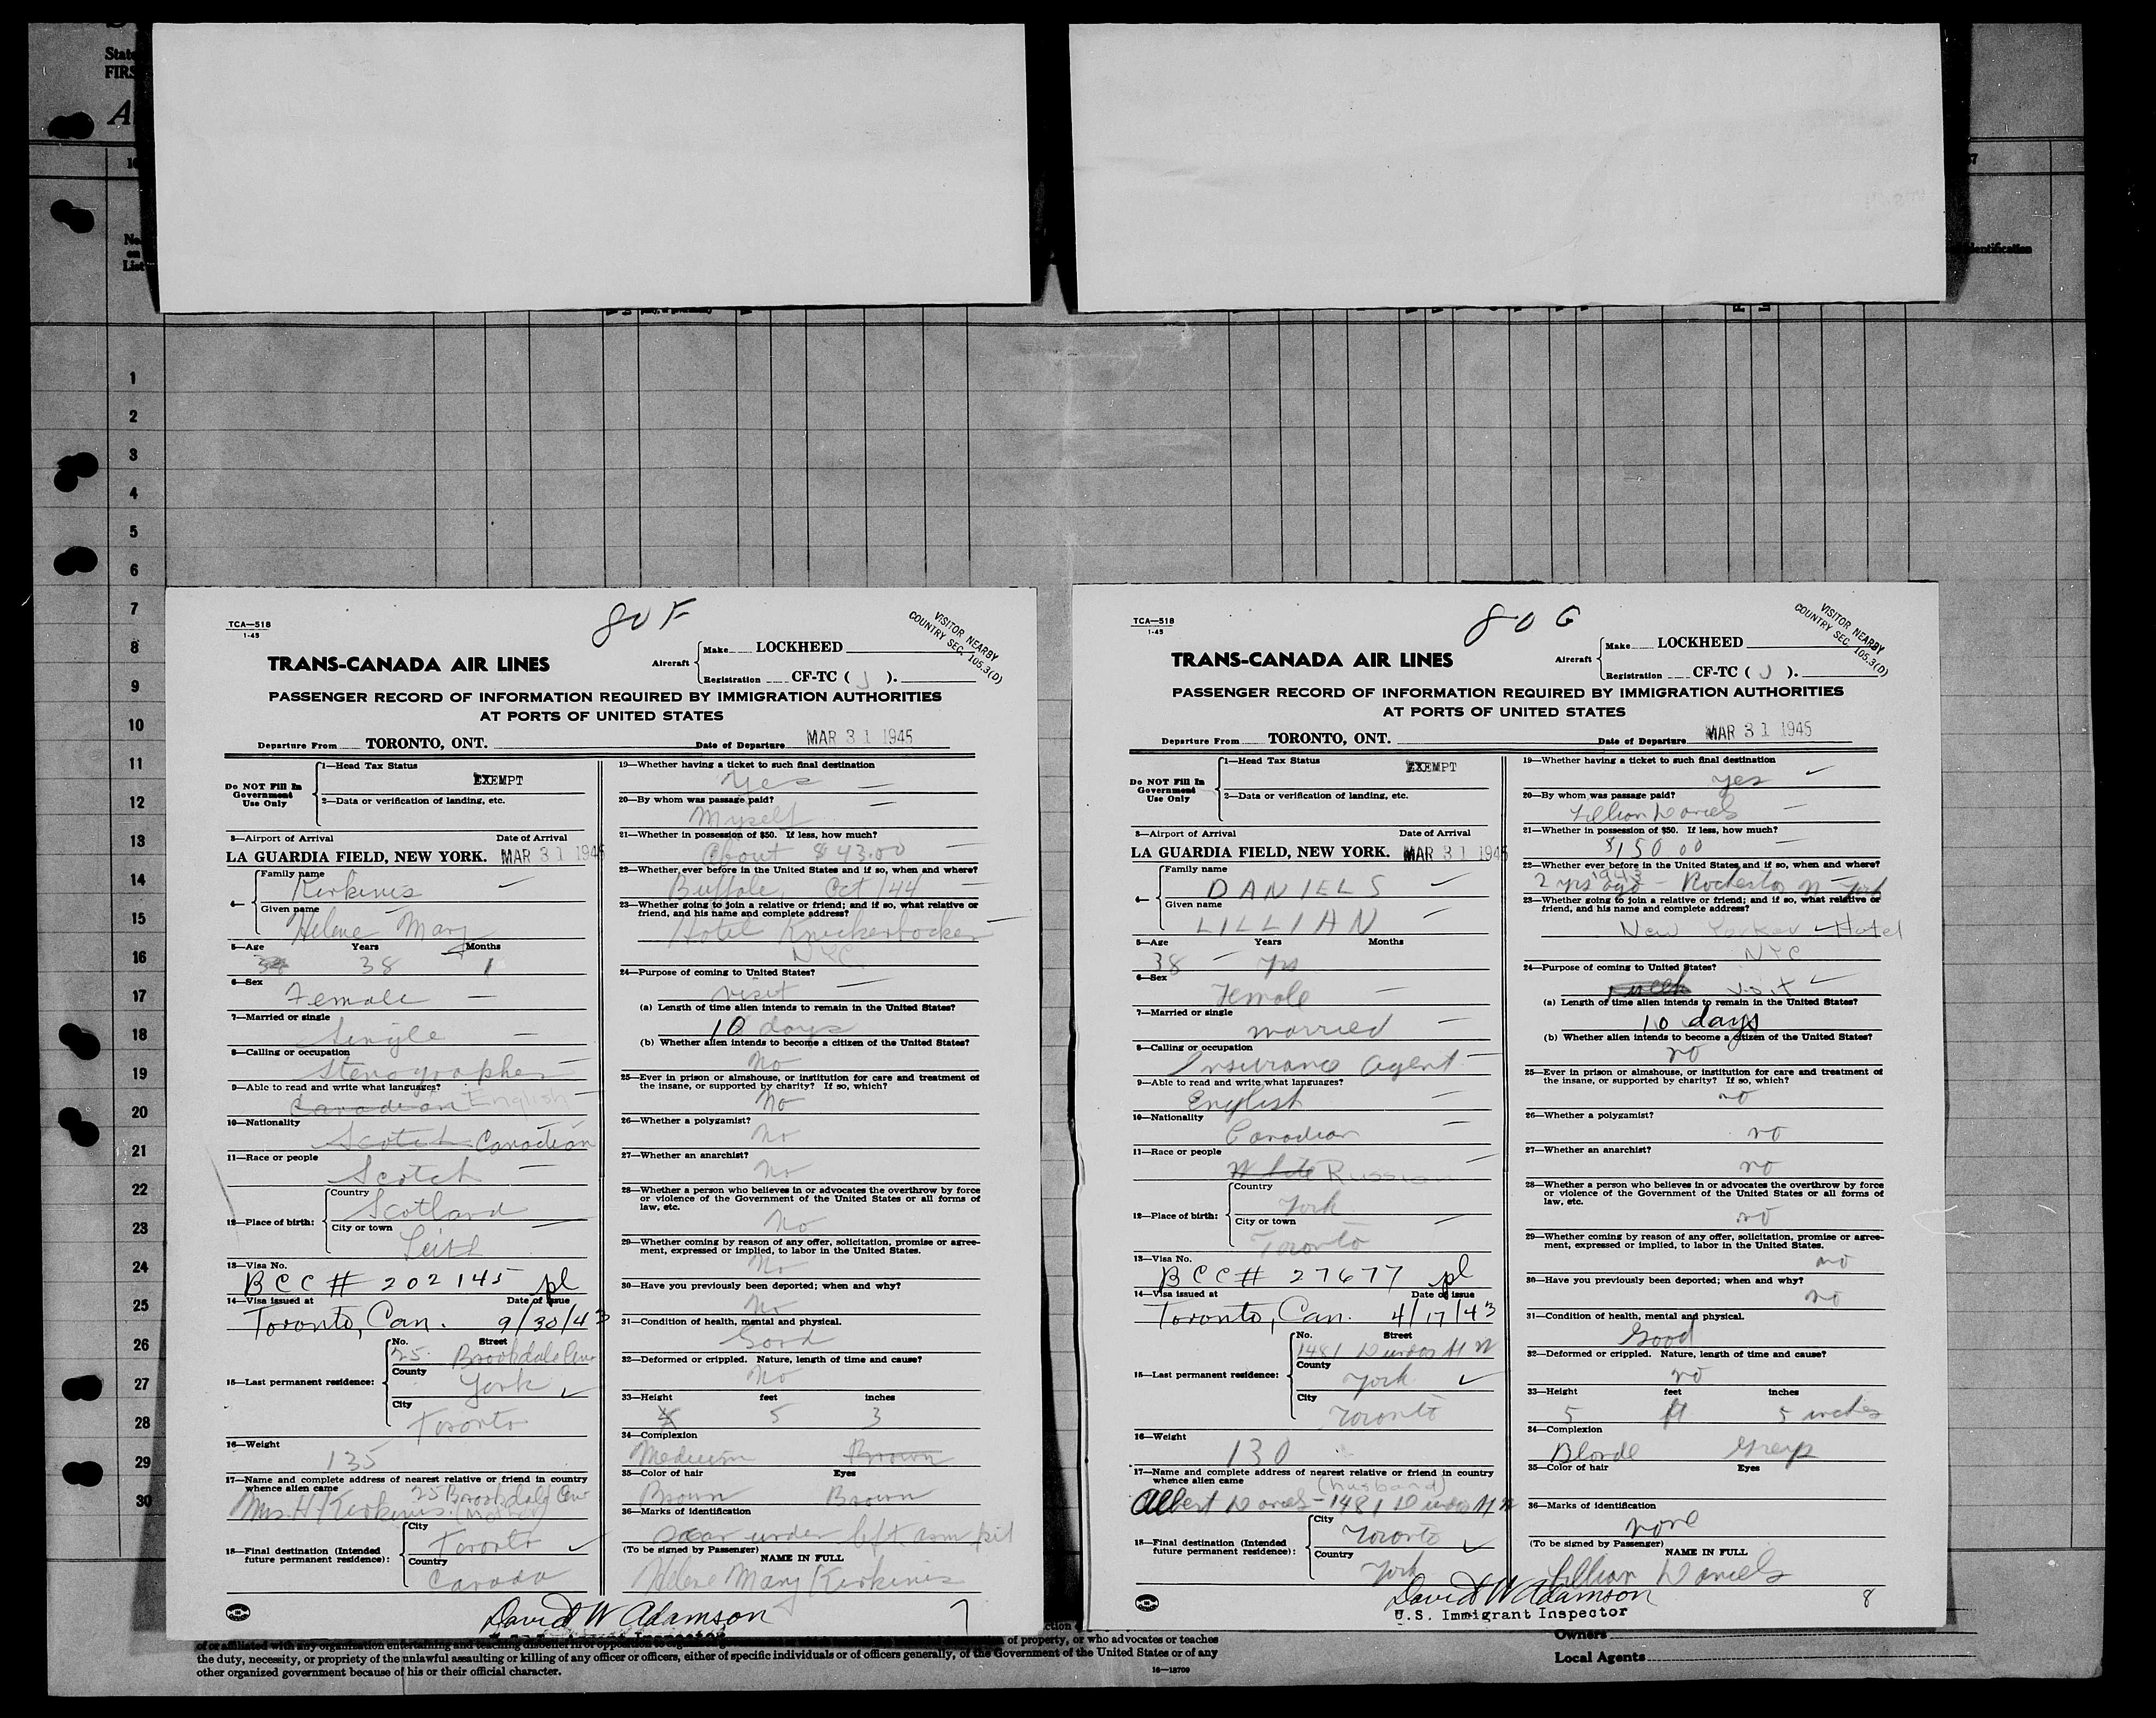 State
FIRS
A
No.
on
List
dentification
1
2
3
4
5
6
7
8
9
10
11
12
13
14
15
16
17
18
19
20
21
22
23
24
25
26
27
28
29
30
80 F
TCA—518
1-45
VISITOR NEARBY
COUNTRY SEC. 105.3(D)
TRANS-CANADA AIR LINES
Aircraft
Make LOCKHEED
Registration CF-TC ( J ).
PASSENGER RECORD OF INFORMATION REQUIRED BY IMMIGRATION AUTHORITIES
AT PORTS OF UNITED STATES
Departure From TORONTO, ONT. Date of Departure MAR 31 1945
Do NOT Fill In
Government
Use Only
1—Head Tax Status
EXEMPT
2—Data or verification of landing, etc.
3—Airport of Arrival Date of Arrival
LA GUARDIA FIELD, NEW YORK. MAR 31 1945
4— Family name
Kirkinis
Given name
Helene Mary
5—Age Years Months
38 1
6—Sex
Female
7—Married or single
Single
8—Calling or occupation
Stenographer
9—Able to read and write what languages?
Canadian English
10—Nationality
Scotch Canadian
11—Race or people
Scotch
12—Place of birth:
Country
Scotland
City or town
Leith
13—Visa No.
BCC # 202145 pl
14—Visa issued at Date of Issue
Toronto, Can. 9/30/43
15—Last permanent residence:
No. Street
25 Brookdale Ave
County
York
City
Toronto
16—Weight
135
17—Name and complete address of nearest relative or friend in country
whence alien came
25 Brookdale Ave
Mrs. H. Kirkinis (Mother)
18—Final destination (Intended
future permanent residence):
City
Toronto
Country
Canada
19—Whether having a ticket to such final destination
Yes
20—By whom was passage paid?
Myself
21—Whether in possession of $50. If less, how much?
About $43.00
22—Whether ever before in the United States and if so, when and where?
Buffalo, Oct/44
23—Whether going to join a relative or friend; and if so, what relative or
friend, and his name and complete address?
Hotel Knickerbocker
NYC
24—Purpose of coming to United States?
visit
(a) Length of time alien intends to remain in the United States?
10 days
(b) Whether alien intends to become a citizen of the United States?
No
25—Ever in prison or almshouse, or institution for care and treatment of
the insane, or supported by charity? If so, which?
No
26—Whether a polygamist?
No
27—Whether an anarchist?
No
28—Whether a person who believes in or advocates the overthrow by force
or violence of the Government of the United States or all forms of
law, etc.
No
29—Whether coming by reason of any offer, solicitation, promise or agree-
ment, expressed or implied, to labor in the United States.
No
30—Have you previously been deported; when and why?
No
31—Condition of health, mental and physical.
Good
32—Deformed or crippled. Nature, length of time and cause?
No
33—Height feet inches
5 3
34—Complexion
Medium Brown
35—Color of hair Eyes
Brown Brown
36—Marks of identification
scar under left arm pit
(To be signed by Passenger)
NAME IN FULL
Helene Mary Kirkinis
David W Adamson
7
80 G
TCA—518
1-45
VISITOR NEARBY
COUNTRY SEC. 105.3(D)
TRANS-CANADA AIR LINES
Aircraft
Make LOCKHEED
Registration CF-TC ( J ).
PASSENGER RECORD OF INFORMATION REQUIRED BY IMMIGRATION AUTHORITIES
AT PORTS OF UNITED STATES
Departure From TORONTO, ONT. Date of Departure MAR 31 1945
Do NOT Fill In
Government
Use Only
1—Head Tax Status
EXEMPT
2—Data or verification of landing, etc.
3—Airport of Arrival Date of Arrival
LA GUARDIA FIELD, NEW YORK. MAR 31 1945
4— Family name
DANIELS
Given name
LILLIAN
5—Age Years Months
38 yrs
6—Sex
Female
7—Married or single
married
8—Calling or occupation
Insurance Agent
9—Able to read and write what languages?
English
10—Nationality
Canadian
11—Race or people
White Russian
12—Place of birth:
Country
York
City or town
Toronto
13—Visa No.
BCC # 27677 pl
14—Visa issued at Date of issue
Toronto, Can. 4/17/43
15—Last permanent residence:
No. Street
1481 Dundas St W
County
York
City
Toronto
16—Weight
130
17—Name and complete address of nearest relative or friend in country
whence alien came
(husband)
Albert Daniels - 1481 Dundas St W
18—Final destination (Intended
future permanent residence):
City
Toronto
Country
York
19—Whether having a ticket to such final destination
yes
20—By whom was passage paid?
Lillian Daniels
21—Whether in possession of $50. If less, how much?
$150.00
22—Whether ever before in the United States and if so, when and where?
1943
2 yrs ago - Rochester N York
23—Whether going to join a relative or friend; and if so, what relative or
friend, and his name and complete address?
New Yorker Hotel
NYC
24—Purpose of coming to United States?
visit
(a) Length of time alien intends to remain in the United States?
10 days
(b) Whether alien intends to become a citizen of the United States?
no
25—Ever in prison or almshouse, or institution for care and treatment of
the insane, or supported by charity? If so, which?
no
26—Whether a polygamist?
no
27—Whether an anarchist?
no
28—Whether a person who believes in or advocates the overthrow by force
or violence of the Government of the United States or all forms of
law, etc.
no
29—Whether coming by reason of any offer, solicitation, promise or agree-
ment, expressed or implied, to labor in the United States.
no
30—Have you previously been deported; when and why?
no
31—Condition of health, mental and physical.
Good
32—Deformed or crippled. Nature, length of time and cause?
no
33—Height feet inches
5 ft 5 inches
34—Complexion
Blonde Greys
35—Color of hair Eyes
36—Marks of identification
none
(To be signed by Passenger)
NAME IN FULL
Lillian Daniels
David W Adamson
U.S. Immigrant Inspector
8
of property, or who advocates or teaches
the duty, necessity, or propriety of the unlawful assaulting or killing of any officer or officers, either of specific individuals or of officers generally, of the Government of the United States or of any
other organized government because of his or their official character.
16—18709
Owners
Local Agents